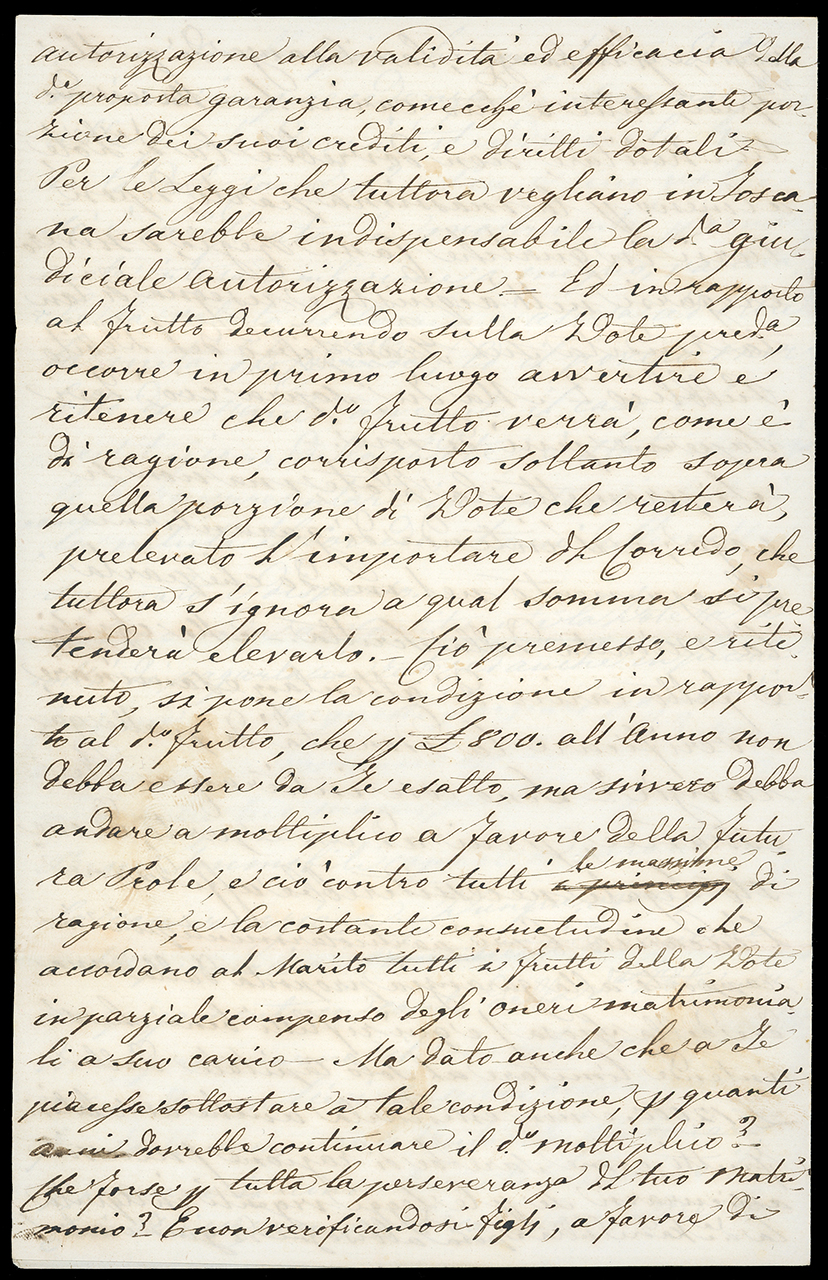 autorizzazione alla validità ed efficacia della
d.ª proposta garanzia, comecchè interessante por-
zione dei suoi crediti, e diritti dotali.
Per le Leggi che tuttora vegliano in Tosca
na sarebbe indispensabile la d.ª giu-
diciale autorizzazione. — Ed in rapporto
al frutto decurrendo sulla Dote pred.ª,
occorre in primo luogo avvertire e
ritenere che d.º frutto verrà, come è
di ragione, corrisposto soltanto sopra
quella porzione di Dote che resterà,
prelevato l'importare del Corredo, che
tuttora s'ignora a qual somma si pre
tenderà elevarlo. — Ciò premesso, e rite-
nuto, si pone la condizione in rappor-
to al d.º frutto, che p £800. all'Anno non
debba essere da Te esatto, ma sivvero debba
andare a moltiplico a favore della futu
ra Prole, e ciò contro tutti le massime di
ragione, e la costante consuetudine che
accordano al Marito tutti i frutti della Dote
in parziale compenso degli oneri matrimonia
li a suo carico — Ma dato anche che a Te
piacesse sottostare a tale condizione, p quanti
anni dovrebbe continuare il d.º moltiplico?
Che forse p tutta la perseveranza del tuo Matri-
monio? E non verificandosi figli, a favore di